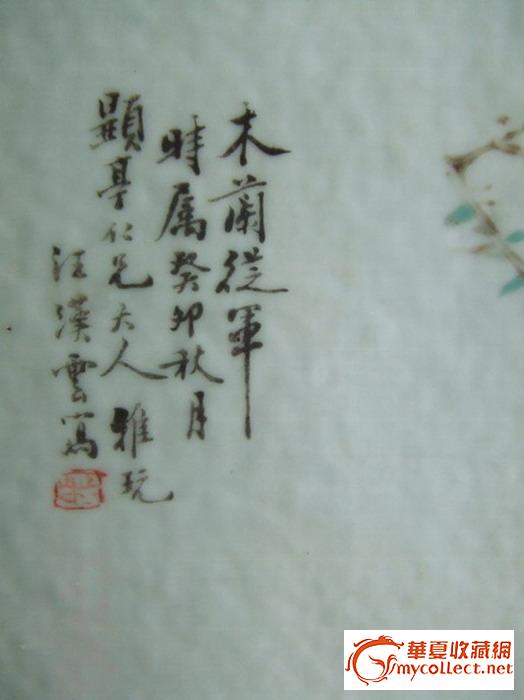 木蘭從軍
時属癸卯秋月
顯亭仁兄大人雅玩
汪漢雲寫
華夏收藏網
mycollect.net